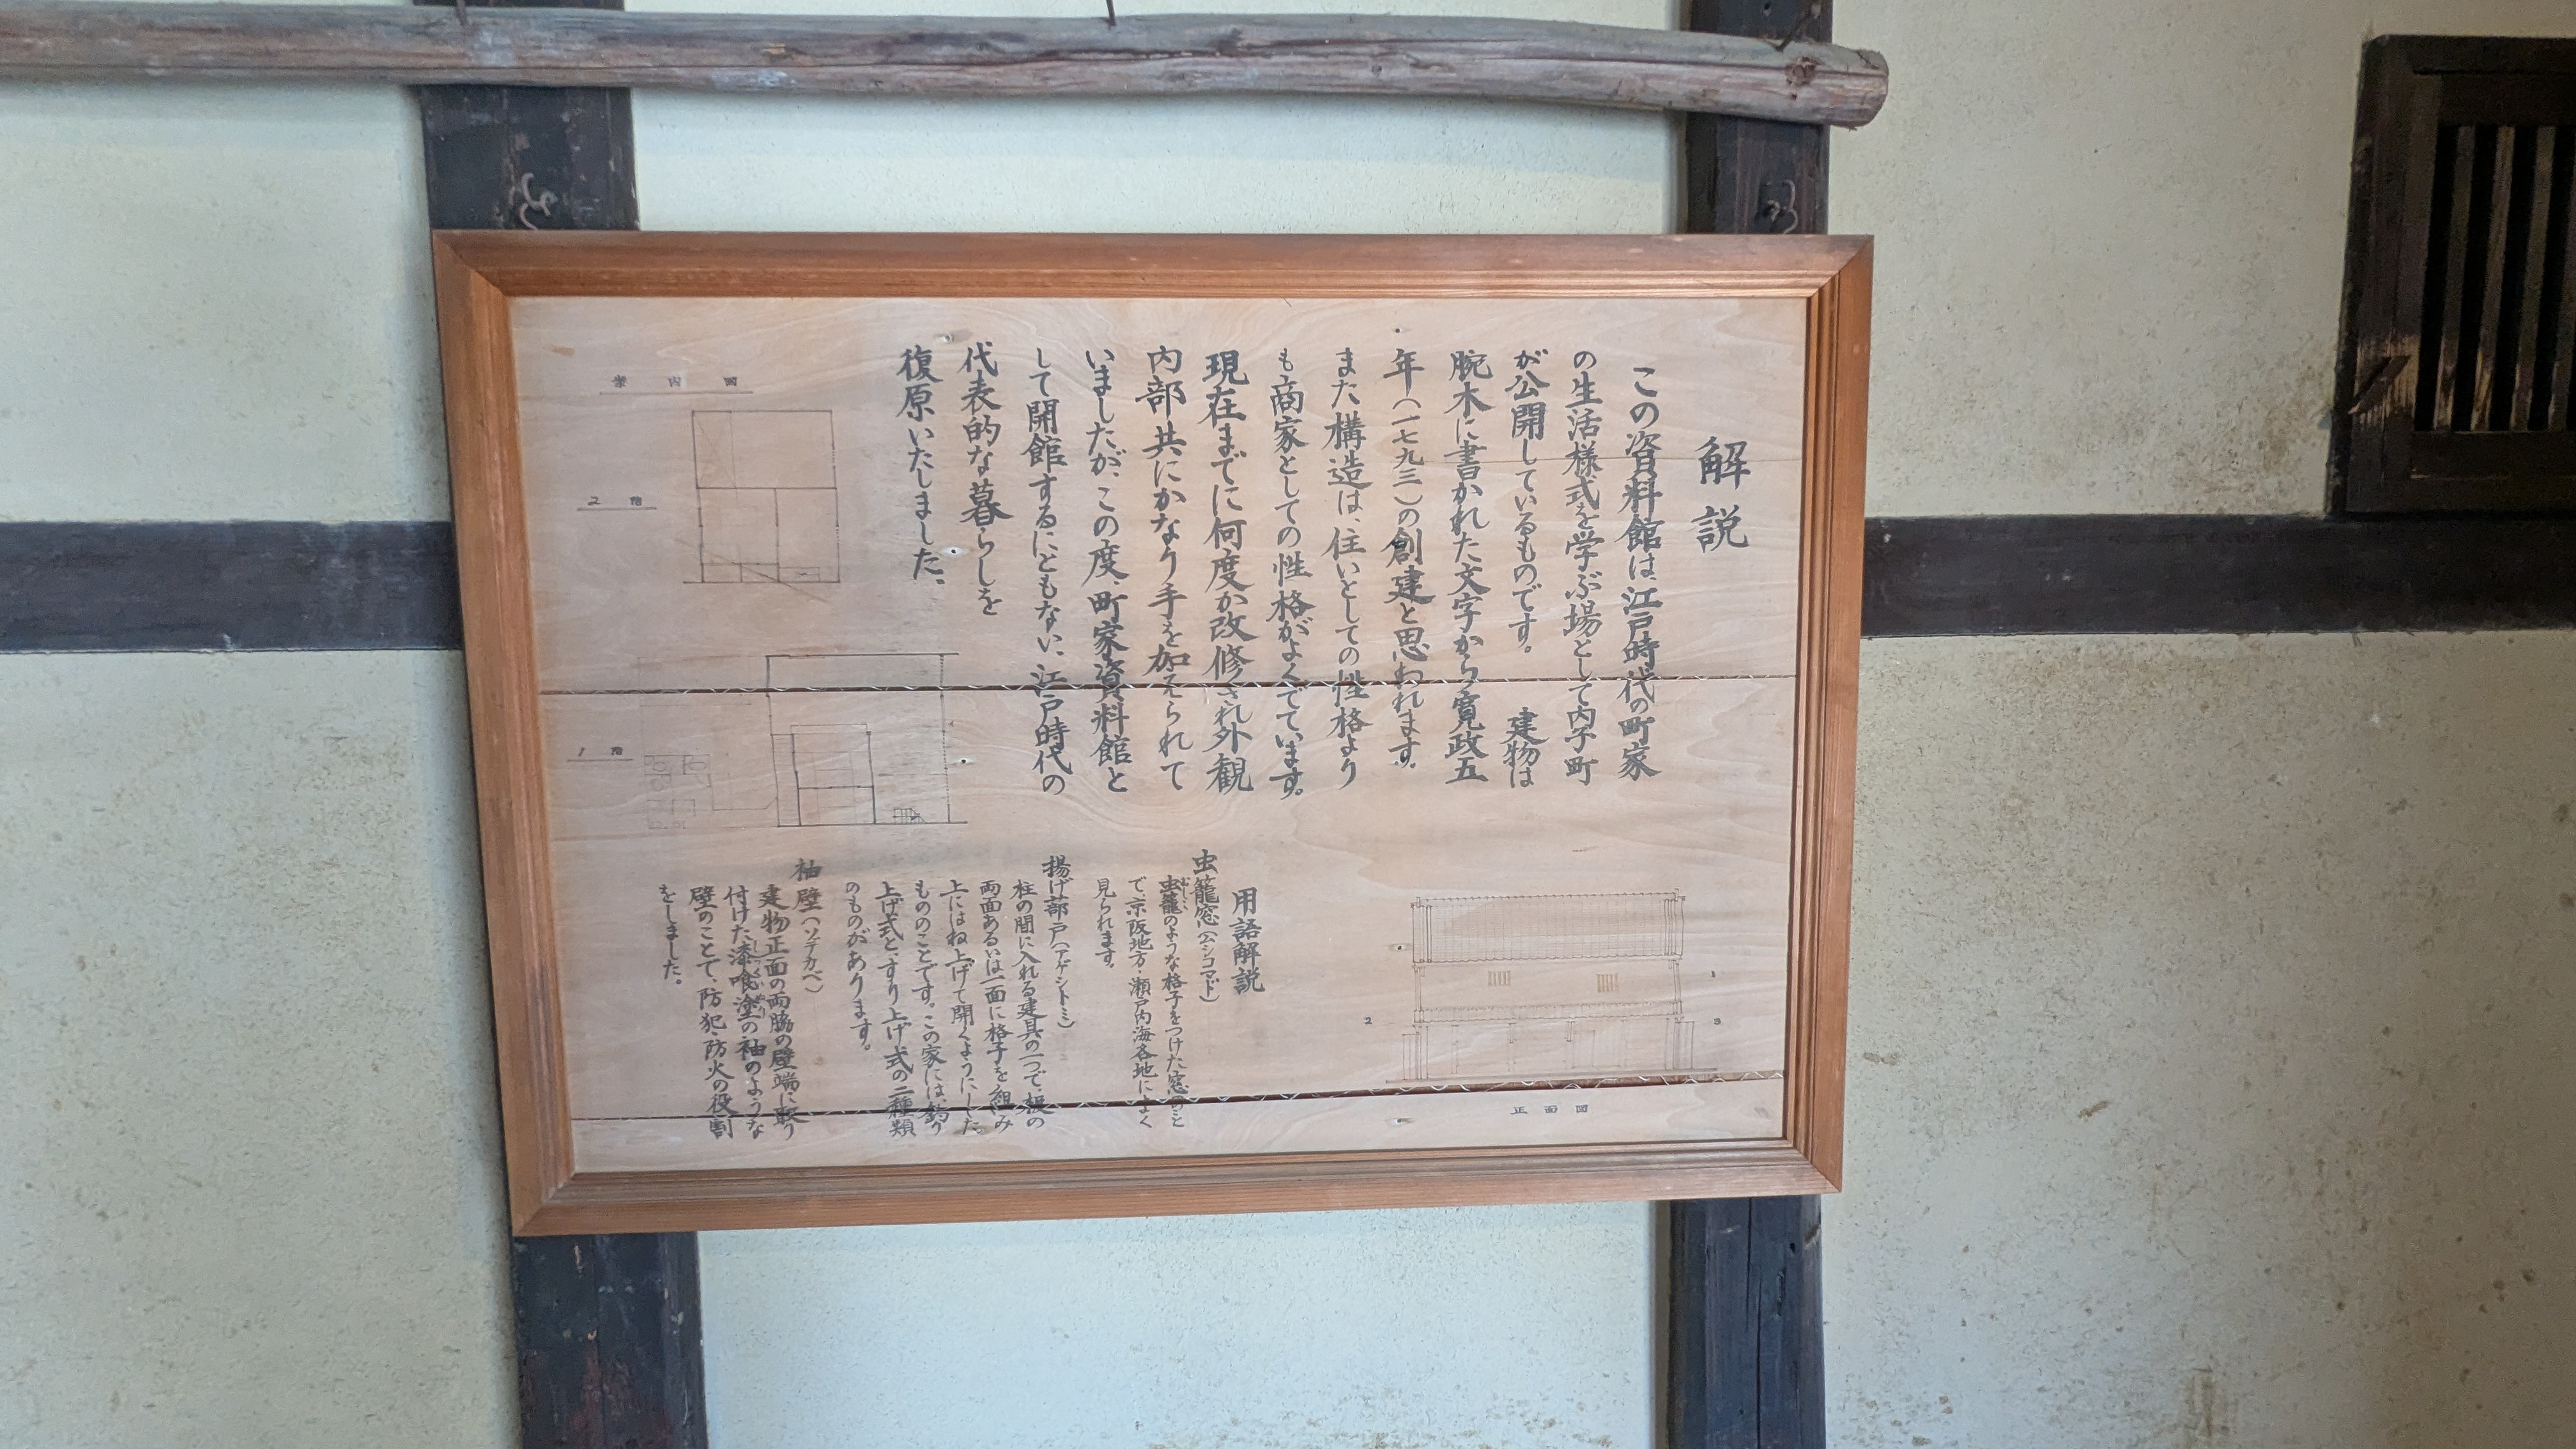 解説
この資料館は、江戸時代の町家
の生活様式を学ぶ場として内子町
が公開しているものです。 建物は
腕木に書かれた文字から寛政五
年(一七九三)の創建と思われます。
また構造は、住いとしての性格より
も商家としての性格がよくでています。
現在までに何度か改修され外観
内部共にかなり手を加えられて
いましたが、この度、町家資料館と
して開館するにともない、江戸時代の
代表的な暮らしを
復原いたしました。
案内図
2階
1階
1
2
3
正面図
用語解説
虫籠窓(ムシコマド)
虫籠のような格子をつけた窓のこと
で、京阪地方・瀬戸内海各地によく
見られます。
揚げ蔀戸(アゲシトミ)
柱の間に入れる建具の一つで、板の
両面あるいは一面に格子を組み
上にはね上げて開くようにした
もののことです。この家には、釣り
上げ式と、すり上げ式の二種類
のものがあります。
袖壁(ソデカベ)
建物正面の両脇の壁端に取り
付けた漆喰塗の袖のような
壁のことで、防犯・防火の役割
をしました。